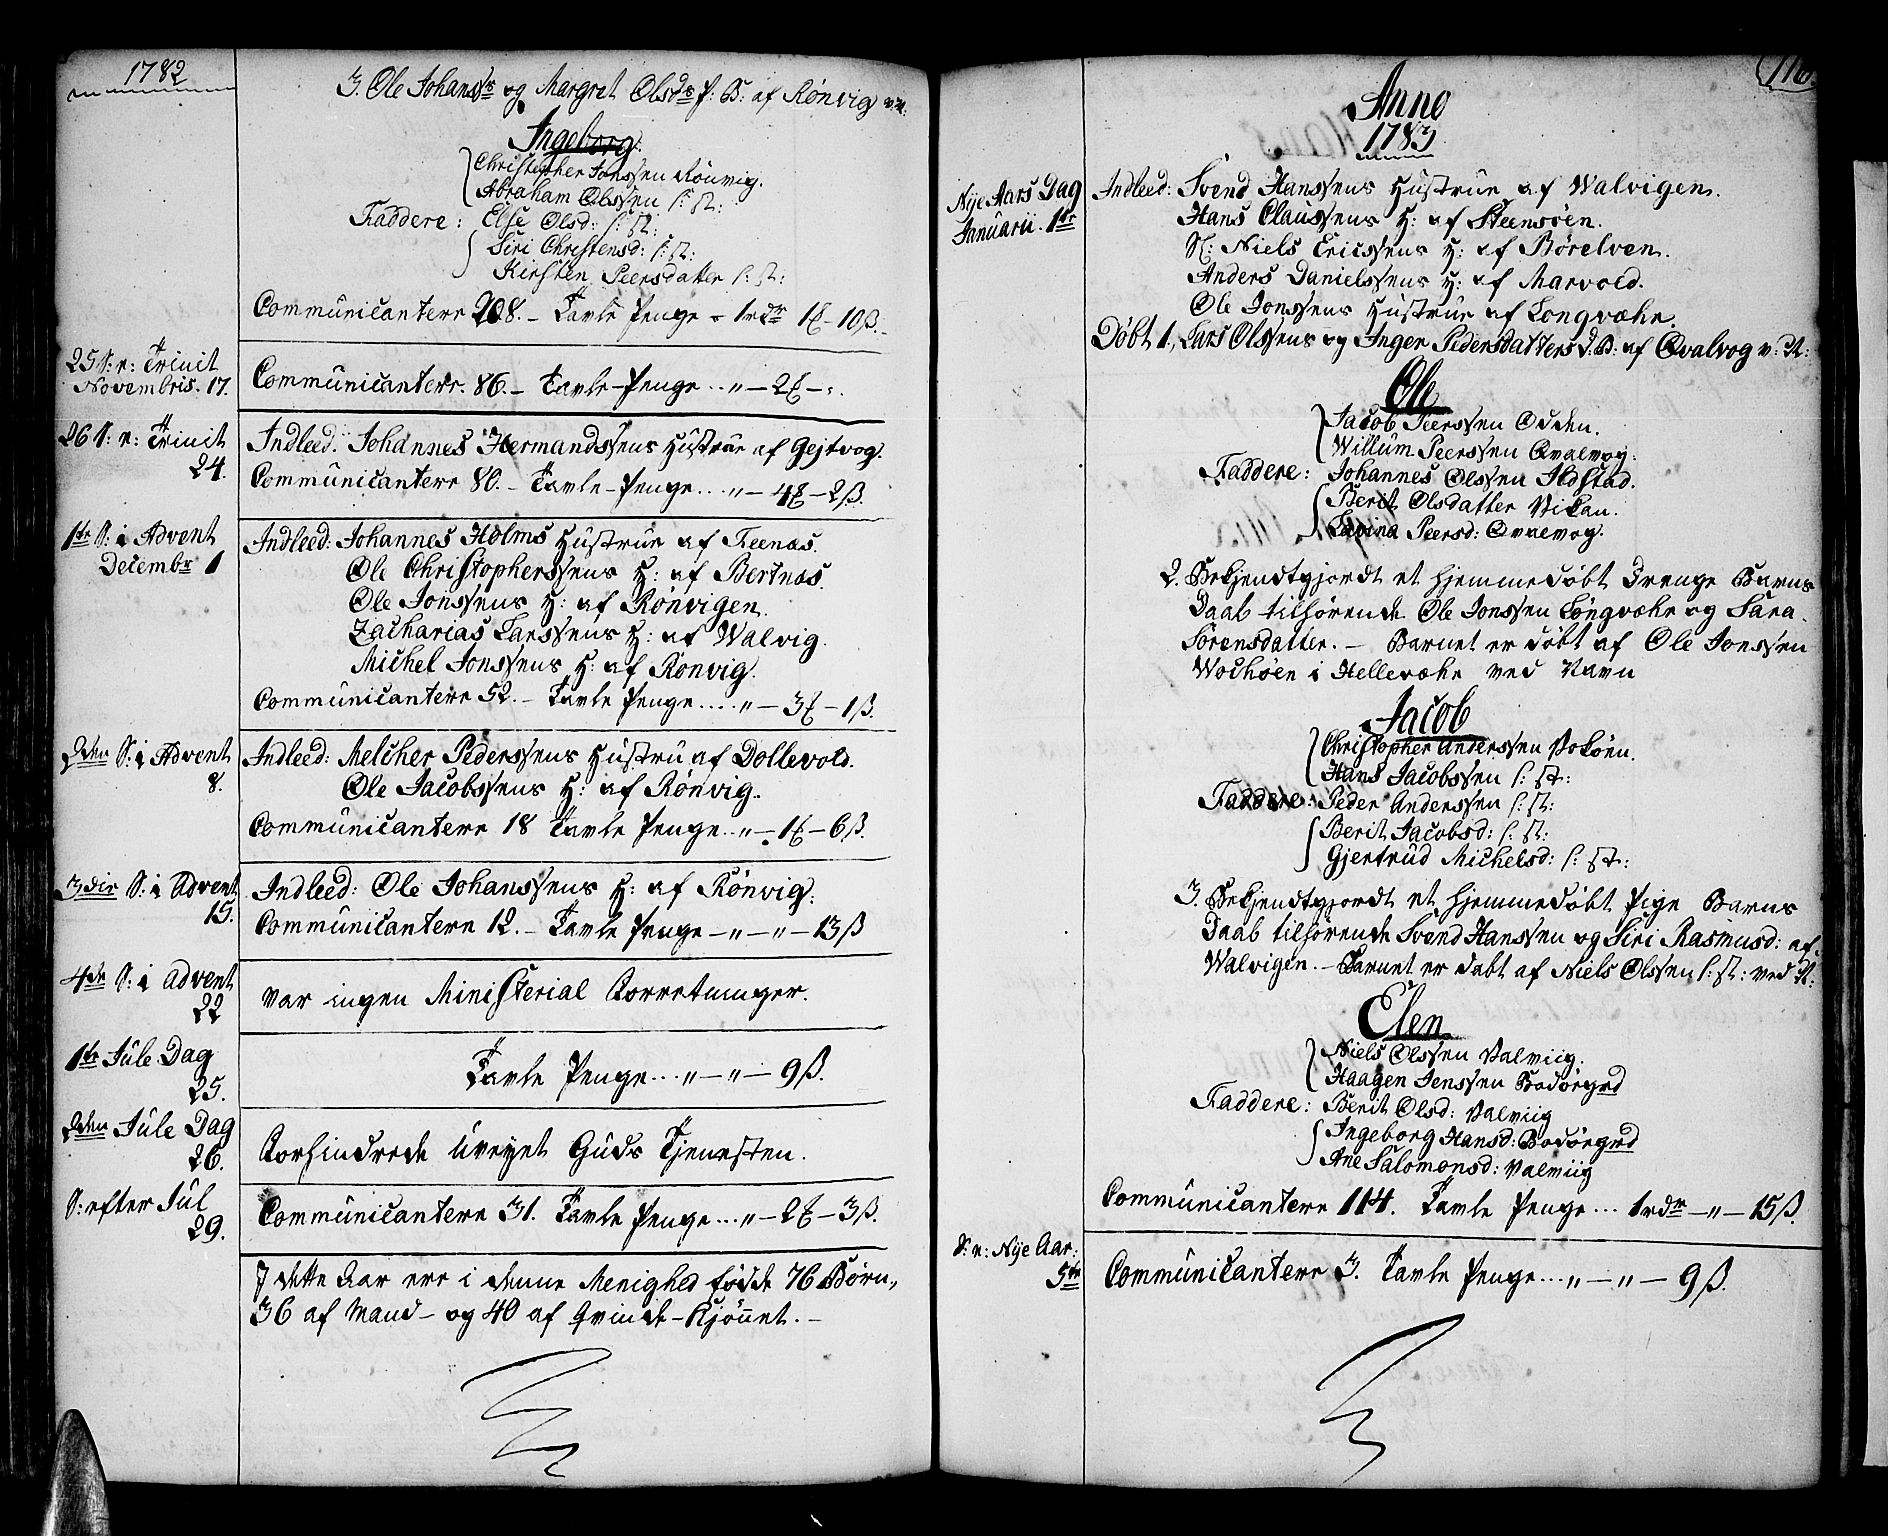 1782
3. Ole Johanssr og Margret Olsdr P: B: af Rönvig v. N.
Ingeborg
Christopher Jonssen Rönvig.
Abraham Olssen l: st:
Faddere: Else Olsd: l: st:
Siri Christensd: l: st:
Kirsten Peersdatter l: st:
Communicantere 208. – Tavle Penge – 1rdr 1£ – 10ß.
25 S: e: Trinit
Novembris. 17.
Communicantere. 86. – Tavle-Penge .. „ – 2£ – „.
26 S: e: Trinit
24.
Indleed. Johannes Hermandssens Hustrue af Gejtvog.
Communicantere 80. – Tavle-Penge ... „ – 4£ – 2ß.
1te S: i Advent
Decembr 1
Indleed: Johannes Holms Hustrue af Teenæs.
Ole Christopherssens H: af Bertnæs.
Ole Jonssens H: af Rönvigen.
Zacharias Larssens H: af Walvig.
Michel Jonssens H: af Rönvig.
Communicantere 52. – Tavle Penge .... „ – 3£ – 1ß.
2den S: i Advent
8.
Indleed: Melcher Pederssens Hustru af Dollevold.
Ole Jacobssens H: af Rönvig.
Communicantere 18 Tavle Penge .. „ – 1£ – 6ß.
3die S: i Advent
15.
Indleed: Ole Johanssens H: af Rönvig.
Communicantere 12. – Tavle Penge – „ – „ – 13ß
4de S: i Advent
22
var ingen Ministerial Forretninger.
1te Jule Dag
25.
Tavle Penge ... „ – „ – 9ß.
2den Jule Dag
26.
Forhindrede Uveyret Guds Tjenesten.
S: efter Jul
29.
Communicantere 31. Tavle Penge ... „ – 2£ – 3ß.
I dette Aar ere i denne Menighed födde 76 Börn,
36 af Mand- og 40 af Qvinde-Kjönnet. –
116.
Anno
1783
Nije Aars Dag
Januarii. 1te
Indleed: Svend Hanssens Hustrue af Walvigen.
Hans Claussens H: af Steensöen.
Sl: Niels Ericssens H: af Börelven.
Anders Danielssens H: af Marvold.
Ole Jonssens Hustrue af Longvæhr.
Döbt 1, Lars Olssens og Inger Pedersdatters D: B: af Qvalvog v: N:
Ole
Jacob Peerssen Odden.
Willum Peerssen Qvalvog.
Faddere: Johannes Olssen Ildstad.
Berit Olsdatter Vikan.
Lavina Peersd: Qvalvog.
2. Bekjendtgjordt et hjemmedöbt Drenge Barns
Daab tilhörende Ole Jonssen Longvæhr og Sara
Sörensdatter. – Barnet er döbt af Ole Jonssen
Wochöen i Hellevæhr ved Navn
Jacob
Christopher Anderssen Voköen.
Hans Jacobssen l: st:
Faddere: Peder Anderssen l: st:
Berit Jacobsd: l: st:
Gjertrud Michelsd: l: st:
3. Bekjendtgjordt et hjemmedöbt Pige Barns
Daab tilhörende Svend Hanssen og Siri Rasmusd: af
Walvigen. – Barnet er döbt af Niels Olssen l: st: ved N:
Elen
Niels Olssen Valviig.
Haagen Jenssen Bodörgrd
Faddere: Berit Olsd: Valviig
Ingeborg Hansd: Bodörgrd
Ane Salomonsd: Valviig
Communicantere 114. Tavle Penge ... 1rdr – „ – 15ß.
S: e: Nije Aar:
5te
Communicantere 3. Tavle Penge ... „ – „ – 9ß.